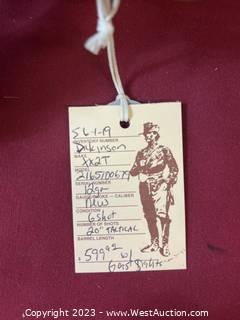 S6-1-19
INVENTORY NUMBER
Dickinson
MAKE
XX2T
MODEL
SERIAL NUMBER
12gr
GAUGE/CHOKE — CALIBER
NEW
CONDITION
6 shot
NUMBER OF SHOTS
20" TACTICAL
BARREL LENGTH
$599.95 w/
Ghost Sights
Copyright 2023 - WestAuction.com